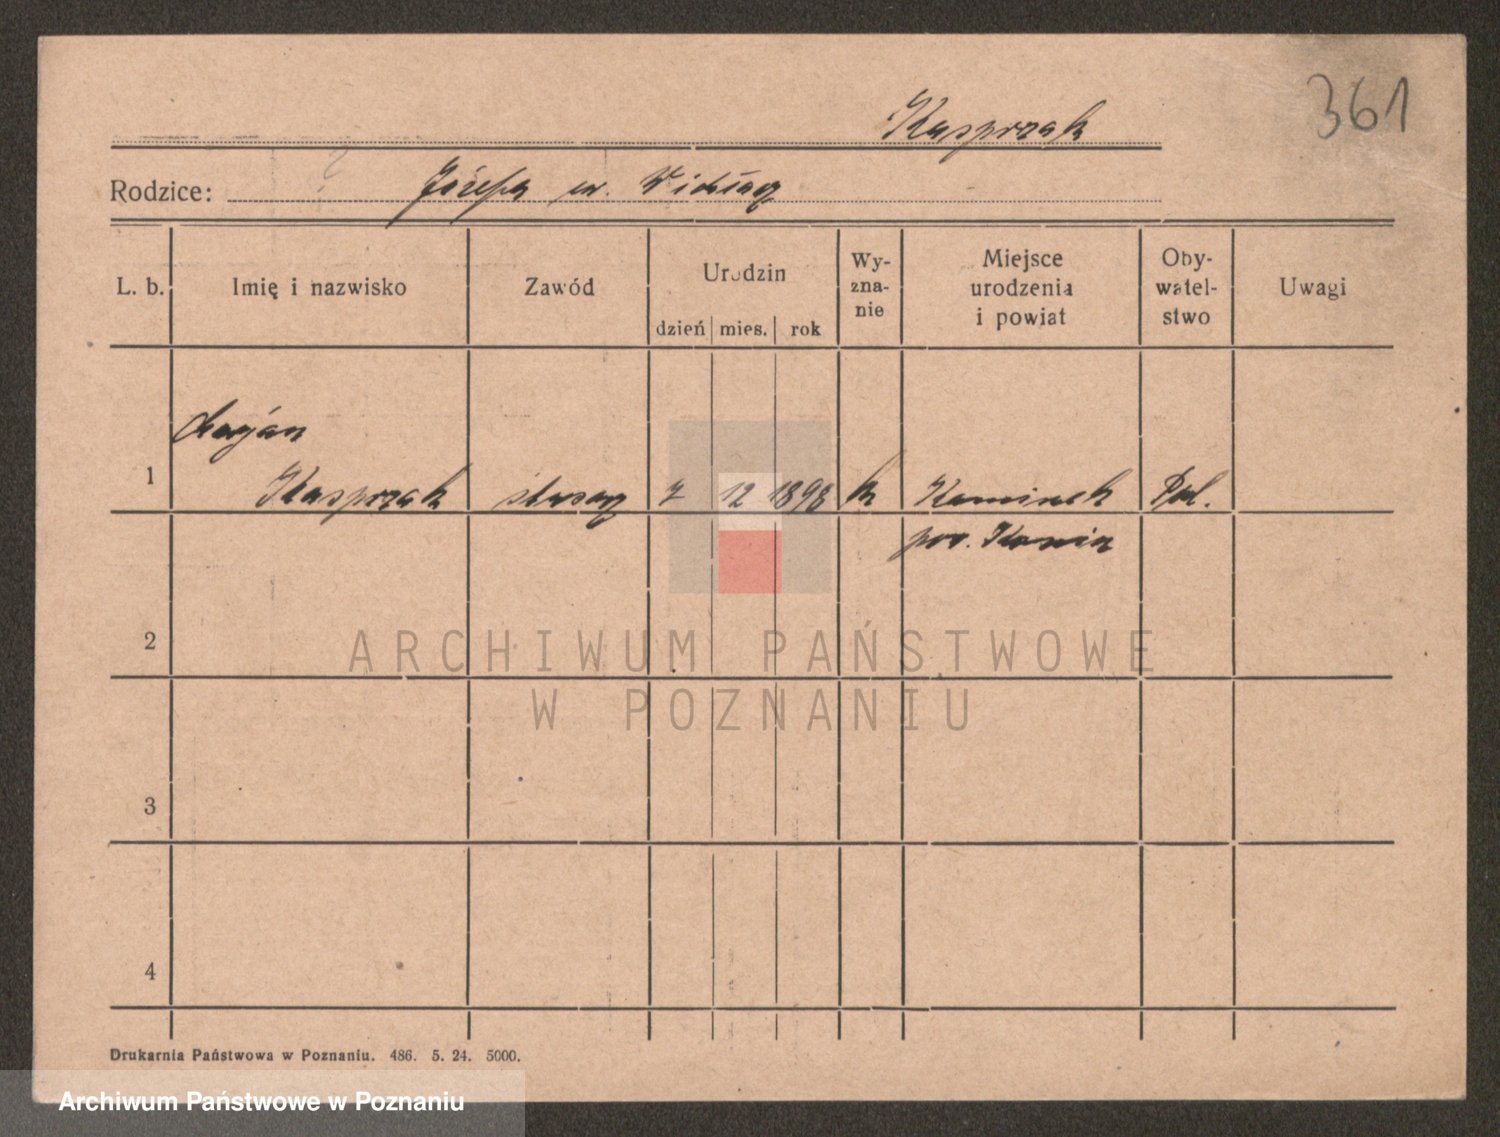 361
Kasprzak
Rodzice: Józefa
L. b. Imię i nazwisko Zawód Urodzin dzień mies. rok Wy-zna-nie Miejsce urodzenia i powiat Oby-watel-stwo Uwagi
1 Maryan
Kasprzak ślusarz 7 12 1898 k Kaminek Pol.
pow. Konin
2
3
4
Drukarnia Państwowa w Poznaniu. 486. 5. 24. 5000.
ARCHIWUM PAŃSTWOWE
W POZNANIU
Archiwum Państwowe w Poznaniu